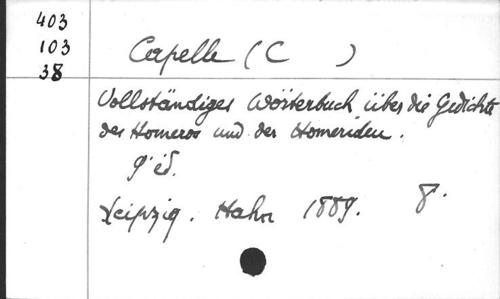 403
103
38
Capelle (C )
Vollständiges Wörterbuch über die Gedichte
des Homeros und der Homeriden.
9' éd.
Leipzig. Hahn 1889. 8°.